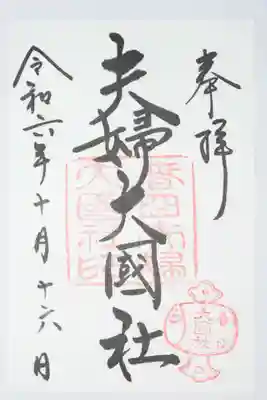 奉拝
夫婦大國社
春日夫婦
大國社印
大国社
令和六年十月十六日